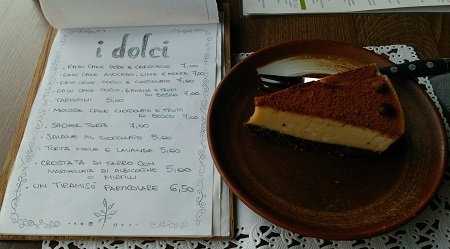 i dolci
RAW CAKE PERE E CIOCCOLATO 7,00
RAW CAKE AVOCADO, LIME E MENTA 7,00
RAW CAKE COCCO E CIOCCOLATO 7,00
RAW CAKE COCCO, BANANA E FRUTTI
DI BOSCO 7,00
TARTUFINI 5,00
MOUSSE CAKE CIOCCOLATO E FRUTTI
DI BOSCO 7,00
SACHER TORTE 7,00
SALAME AL CIOCCOLATO 5,00
TORTA MELE E LAVANDA 5,00
CROSTATA DI FARRO CON
MARMELLATA DI ALBICOCCHE 5,00
O MIRTILLI
UN TIRAMISÙ PARTICOLARE 6,50